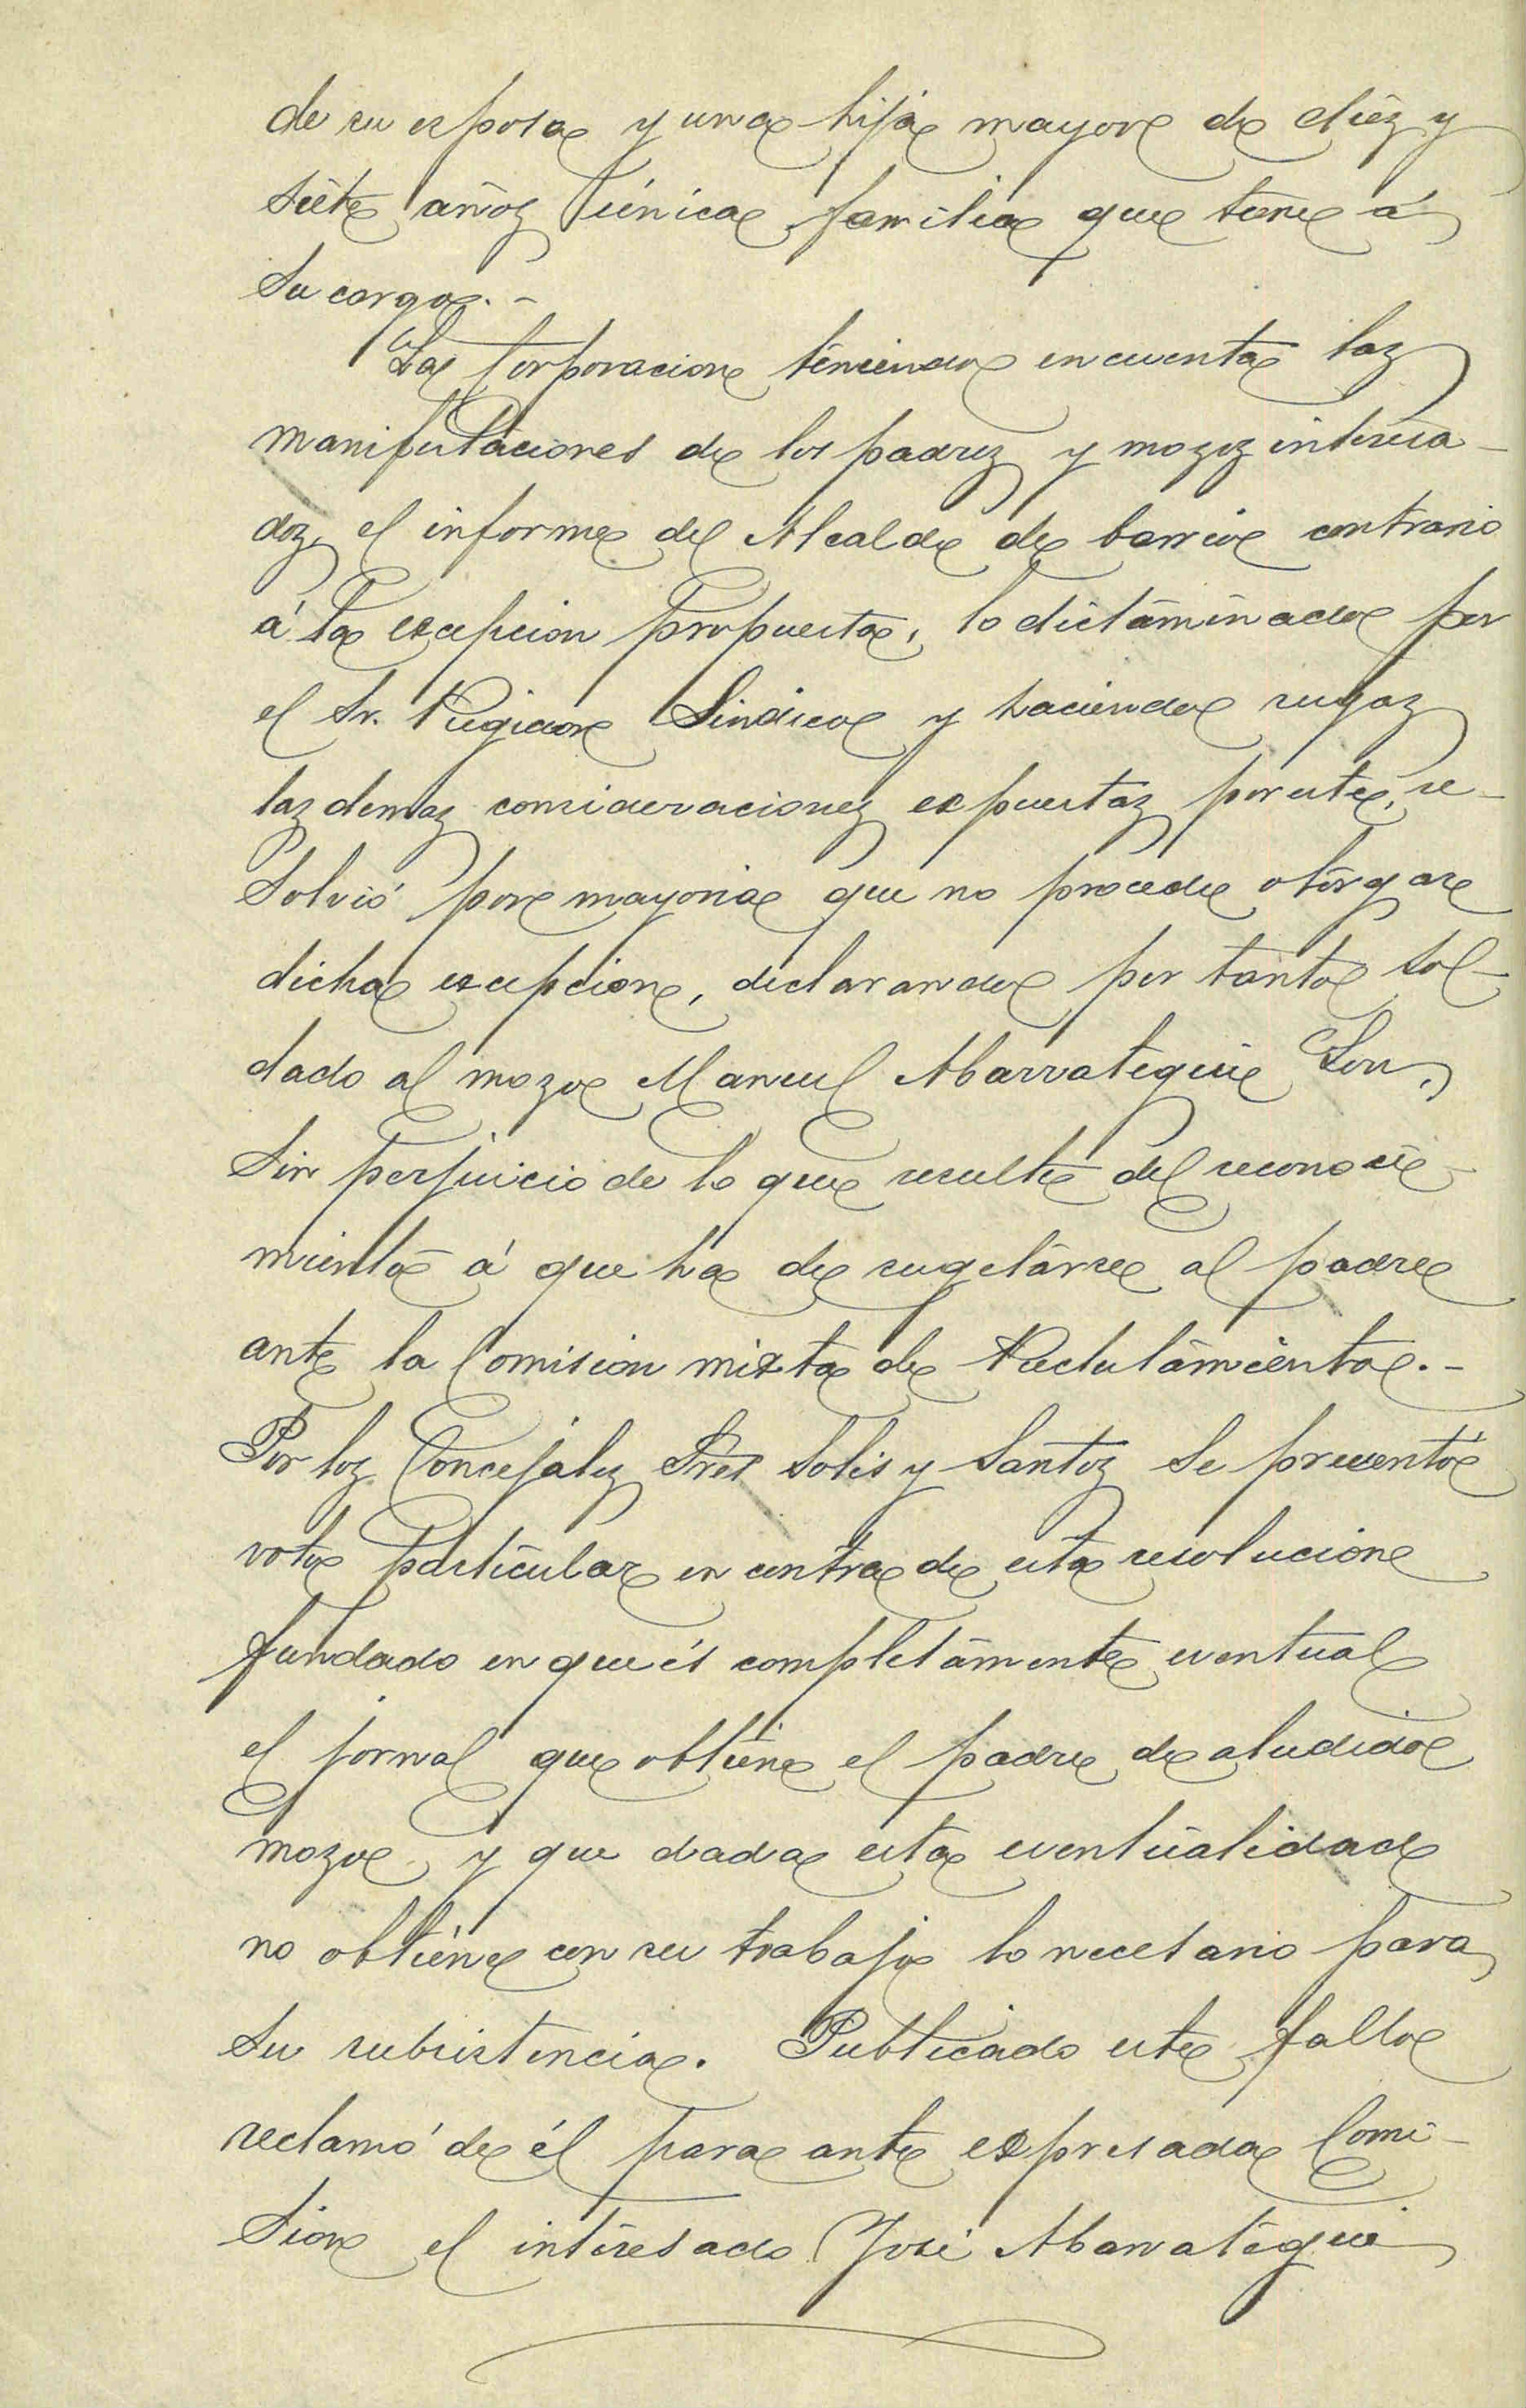 de su esposa y una hija mayor de diez y
siete años única familia que tiene á
su cargo.-
La Corporacion teniendo en cuenta las
manifestaciones de los padres y mozos interesa-
dos, el informe del Alcalde de barrio contrario
á la excepcion propuesta, lo dictaminado por
el Sr. Regidor Sindico y haciendo suyas
las demas consideraciones expuestas por este, re-
solvió por mayoria que no procede otorgar
dicha excepcion, declarando por tanto sol-
dado al mozo Manuel Abarrategui Son,
sin perjuicio de lo que resulte del reconoci-
miento á que ha de sugetarse al padre
ante la Comision mixta de Reclutamiento.-
Por los Concejales Sres Solis y Santos se presentó
voto particular en contra de esta resolucion
fundado en que és completamente eventual
el jornal que obtiene el padre de aludido
mozo y que dada esta eventualidad
no obtiene con su trabajo lo necesario para
su subsistencia. Publicado este fallo
reclamó de él para ante expresada Comi-
sion el interesado José Abarrategui